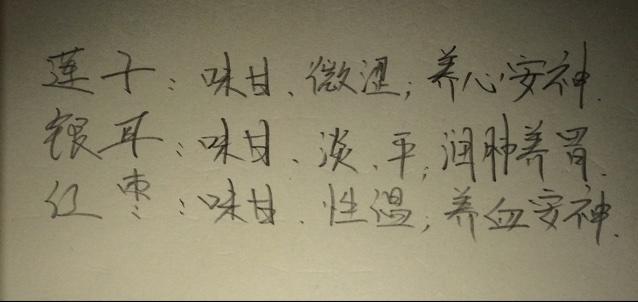 莲子：味甘、微涩；养心安神.
银耳：味甘、淡、平；润肺养胃.
红枣：味甘、性温；养血安神.